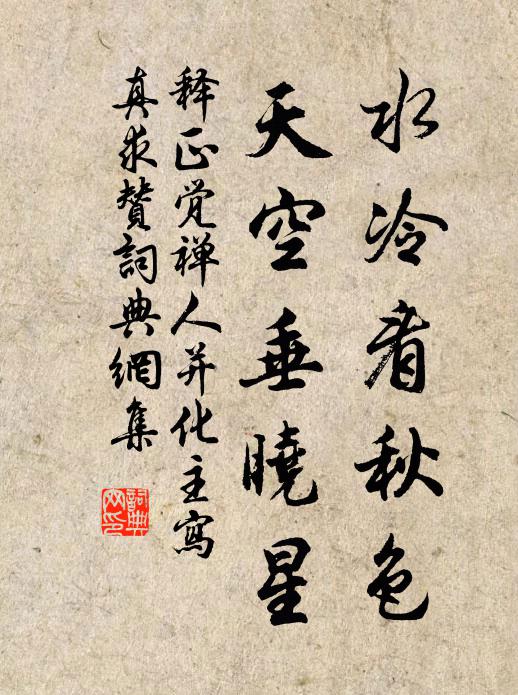 水冷看秋色
天空垂曉星
释正覚禅人并化主寫
真求賛詞典網集
詞典
网印